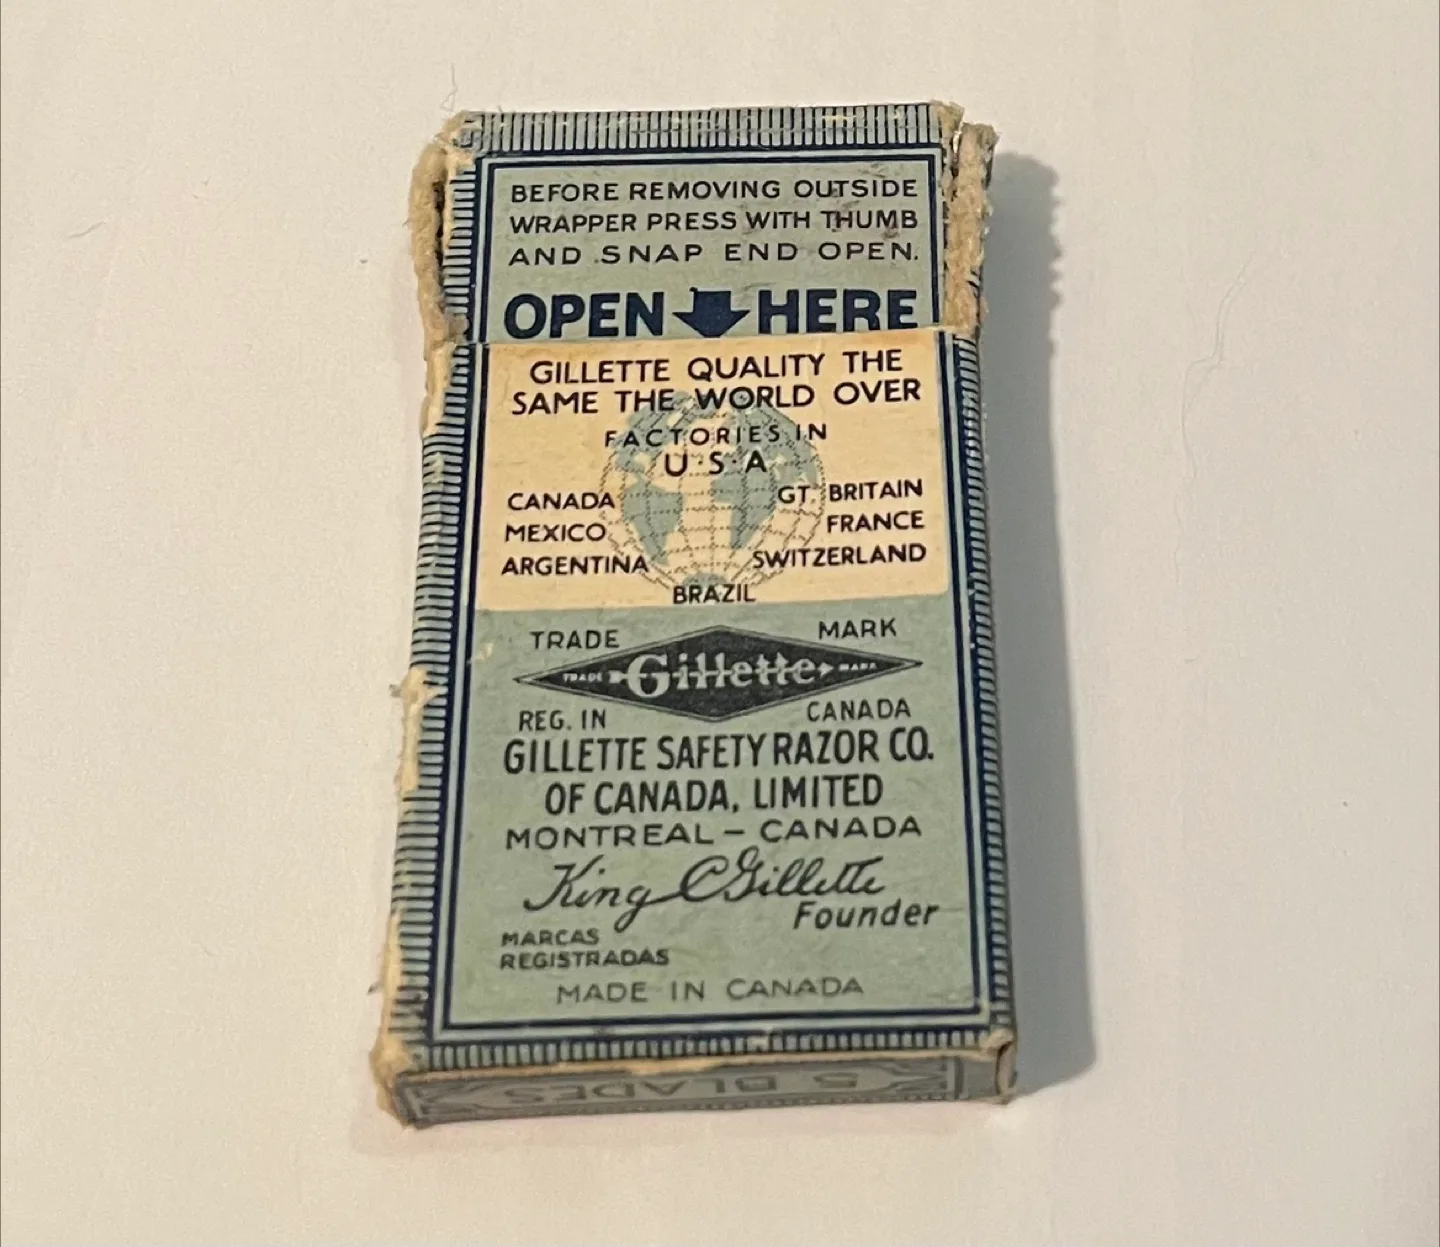 BEFORE REMOVING OUTSIDE
WRAPPER PRESS WITH THUMB
AND SNAP END OPEN.
OPEN HERE
GILLETTE QUALITY THE
SAME THE WORLD OVER
FACTORIES IN
U·S·A
CANADA GT. BRITAIN
MEXICO FRANCE
ARGENTINA SWITZERLAND
BRAZIL
TRADE MARK
TRADE Gillette MARK
REG. IN CANADA
GILLETTE SAFETY RAZOR CO.
OF CANADA, LIMITED
MONTREAL – CANADA
King C Gillette
Founder
MARCAS
REGISTRADAS
MADE IN CANADA
5 BLADES